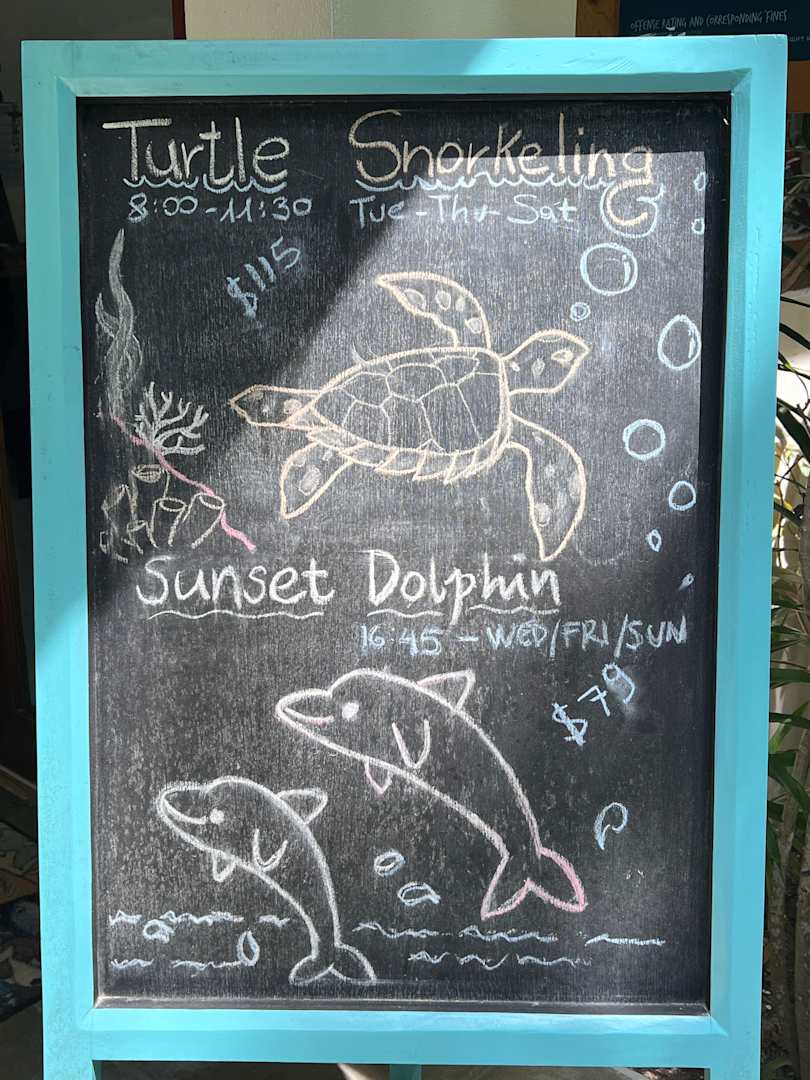 OFFENSE RATING AND CORRESPONDING FINES
Turtle Snorkeling
8:00-11:30 Tue-Thu-Sat
$115
Sunset Dolphin
16:45 - WED/FRI/SUN
$79